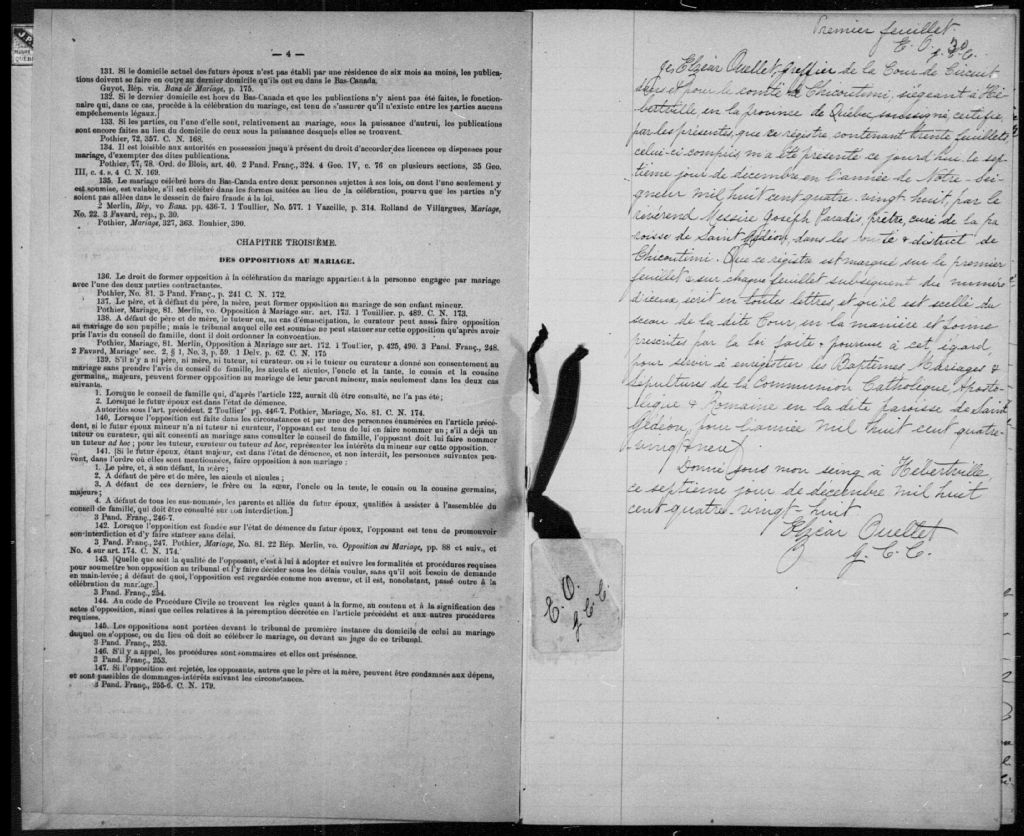 — 4 —
131. Si le domicile actuel des futurs époux n'est pas établi par une résidence de six mois au moins, les publica-
tions doivent se faire en outre au dernier domicile qu'ils ont eu dans le Bas-Canada.
Guyot, Rép. vis. Bans de Mariage, p. 175.
132. Si le dernier domicile est hors du Bas-Canada et que les publications n'y aient pas été faites, le fonction-
naire qui, dans ce cas, procède à la célébration du mariage, est tenu de s'assurer qu'il n'existe entre les parties aucun
empêchements légaux.]
133. Si les parties, ou l'une d'elle sont, relativement au mariage, sous la puissance d'autrui, les publications
sont encore faites au lieu du domicile de ceux sous la puissance desquels elles se trouvent.
Pothier, 72, 357. C. N. 168.
134. Il est loisible aux autorités en possession jusqu'à présent du droit d'accorder des licences ou dispenses pour
mariage, d'exempter des dites publications.
Pothier, 77, 78. Ord. de Blois, art. 40. 2 Pand. Franç., 324. 4 Geo. IV, c. 76 en plusieurs sections, 35 Geo.
III, c. 4. s. 4 C. N. 169.
135. Le mariage célébré hors du Bas-Canda entre deux personnes sujettes à ses lois, ou dont l'une seulement y
est soumise, est valable, s'il est célébré dans les formes usitées au lieu de la célébration, pourvu que les parties n'y
soient pas allées dans le dessein de faire fraude à la loi.
2 Merlin, Rép, vo Bans. pp. 436-7. 1 Toullier, No. 577. 1 Vazeille, p. 314. Rolland de Villargues, Mariage,
No. 22. 3 Favard, rép., p. 30.
Pothier, Mariage, 327, 363. Bouhier, 390.
CHAPITRE TROISIÈME.
DES OPPOSITIONS AU MARIAGE.
136. Le droit de former opposition à la célébration du mariage appartient à la personne engagée par mariage
avec l'une des deux parties contractantes.
Pothier, No. 81. 3 Pand. Franç., p. 241 C. N. 172.
137. Le père, et à défaut du père, la mère, peut former opposition au mariage de son enfant mineur.
Pothier, Mariage, 81. Merlin, vo. Opposition à Mariage sur. art. 173. 1 Touillier. p. 489. C. N. 173.
138. A défaut de père et de mère, le tuteur ou, au cas d'émancipation, le curateur peut aussi faire opposition
au mariage de son pupille; mais le tribunal auquel elle est soumise ne peut statuer sur cette opposition qu'après avoir
pris l'avis du conseil de famille, dont il doit ordonner la convocation.
Pothier, Mariage, 81. Merlin, Opposition à Mariage sur art. 172. 1 Toullier, p. 425, 490. 3 Pand. Franç., 248.
2 Favard, Mariage' sec. 2, § 1, No, 3, p. 59. 1 Delv. p. 62. C. N. 175
139. S'il n'y a ni père, ni mère, ni tuteur, ni curateur, ou si le tuteur ou curateur a donné son consentement au
mariage sans prendre l'avis du conseil de famille, les aïeuls et aïeules, l'oncle et la tante, le cousin et la cousine
germains, majeurs, peuvent former opposition au mariage de leur parent mineur, mais seulement dans les deux cas
suivants.
1. Lorsque le conseil de famille qui, d'après l'article 122, aurait dû être consulté, ne l'a pas été;
2. Lorsque le futur époux est dans l'état de démence.
Autorités sous l'art. précédent. 2 Toullier' pp. 446-7. Pothier, Mariage, No. 81. C. N. 174.
140, Lorsque l'opposition est faite dans les circonstances et par une des personnes énumérées en l'article précé-
dent, si le futur époux mineur n'a ni tuteur ni curateur, l'opposant est tenu de lui en faire nommer un; s'il a déjà un
tuteur ou curateur, qui ait consenti au mariage sans consulter le conseil de famille, l'opposant doit lui faire nommer
un tuteur ad hoc; pour les tuteur, curateur ou tuteur ad hoc, représenter les intérêts du mineur sur cette opposition.
141. [Si le futur époux, étant majeur, est dans l'état de démence, et non interdit, les personnes suivantes peu-
vent, dans l'ordre où elles sont mentionnées, faire opposition à son mariage :
1. Le père, et, à son défaut, la mère;
2. A défaut de père et de mère, les aïeuls et aïeules;
3. A défaut de ces derniers, le frère ou la sœur, l'oncle ou la tente, le cousin ou la cousine germains,
majeurs;
4. A défaut de tous les sus-nommés, les parents et alliés du futur époux, qualifiés à assister à l'assemblée du
conseil de famille, qui doit être consulté sur son interdiction.]
3 Pand. Franç., 246-7.
142. Lorsque l'opposition est fondée sur l'état de démence du futur époux, l'opposant est tenu de promouvoir
son interdiction et d'y faire statuer sans délai.
3 Pand. Franç., 247. Pothier, Mariage, No. 81. 22 Rép. Merlin, vo. Opposition au Mariage, pp. 88 et suiv., et
No. 4 sur art. 174. C. N. 174.
143. [Quelle que soit la qualité de l'opposant, c'est à lui à adopter et suivre les formalités et procédures requises
pour soumettre son opposition au tribunal et l'y faire décider sous les délais voulus, sans qu'il soit besoin de demande
en main-levée; à défaut de quoi, l'opposition est regardée comme non avenue, et il est, nonobstant, passé outre à la
célébration du mariage.]
3 Pand. Franç., 254.
144. Au code de Procédure Civile se trouvent les règles quant à la forme, au contenu et à la signification des
actes d'opposition, ainsi que celles relatives à la péremption décrétée en l'article précédent et aux autres procédures
requises.
145. Les oppositions sont portées devant le tribunal de première instance du domicile de celui au mariage
duquel on s'oppose, ou du lieu où doit se célébrer le mariage, ou devant un juge de ce tribunal.
3 Pand. Franç., 253.
146. S'il y a appel, les procédures sont sommaires et elles ont préséance.
3 Pand. Franç., 253.
147. Si l'opposition est rejetée, les opposants, autres que le père et la mère, peuvent être condamnés aux dépens,
et sont passibles de dommages-intérêts suivant les circonstances.
3 Pand. Franç., 255-6. C. N. 179.
E. O.
g C. C.
Premier feuillet.
E. O. 30
g. C. C.
Je, Elzéar Ouellet, greffier de la Cour de Circuit
dans et pour le comté de Chicoutimi, siégeant à Hé-
bertville en la province de Québec, soussigné, certifie,
par les présentes, que ce registre, contenant trente feuillets,
celui-ci compris m'a été présenté ce jourd'hui le sep-
tième jour de décembre en l'année de Notre-Sei-
gneur mil huit cent quatre-vingt huit, par le
révérend Messire Joseph Paradis, prêtre, curé de la pa
roisse de Saint Gédéon, dans les comté & district de
Chicoutimi. Que ce registre est marqué sur le premier
feuillet & sur chaque feuillet subséquent du numéro
d'iceux écrit en toutes lettres, et qu'il est scellé du
sceau de la dite Cour, en la manière et forme
prescrites par la loi faite & pourvue à cet égard,
pour servir à enregistrer les Baptêmes Mariages &
Sépultures de la Communion Catholique Aposto-
lique & Romaine en la dite paroisse de Saint
Gédéon, pour l'année mil huit cent quatre-
vingt neuf.
Donné sous mon seing à Hébertville
ce septième jour de décembre mil huit
cent quatre-vingt-huit
Elzéar Ouellet
g. C. C.